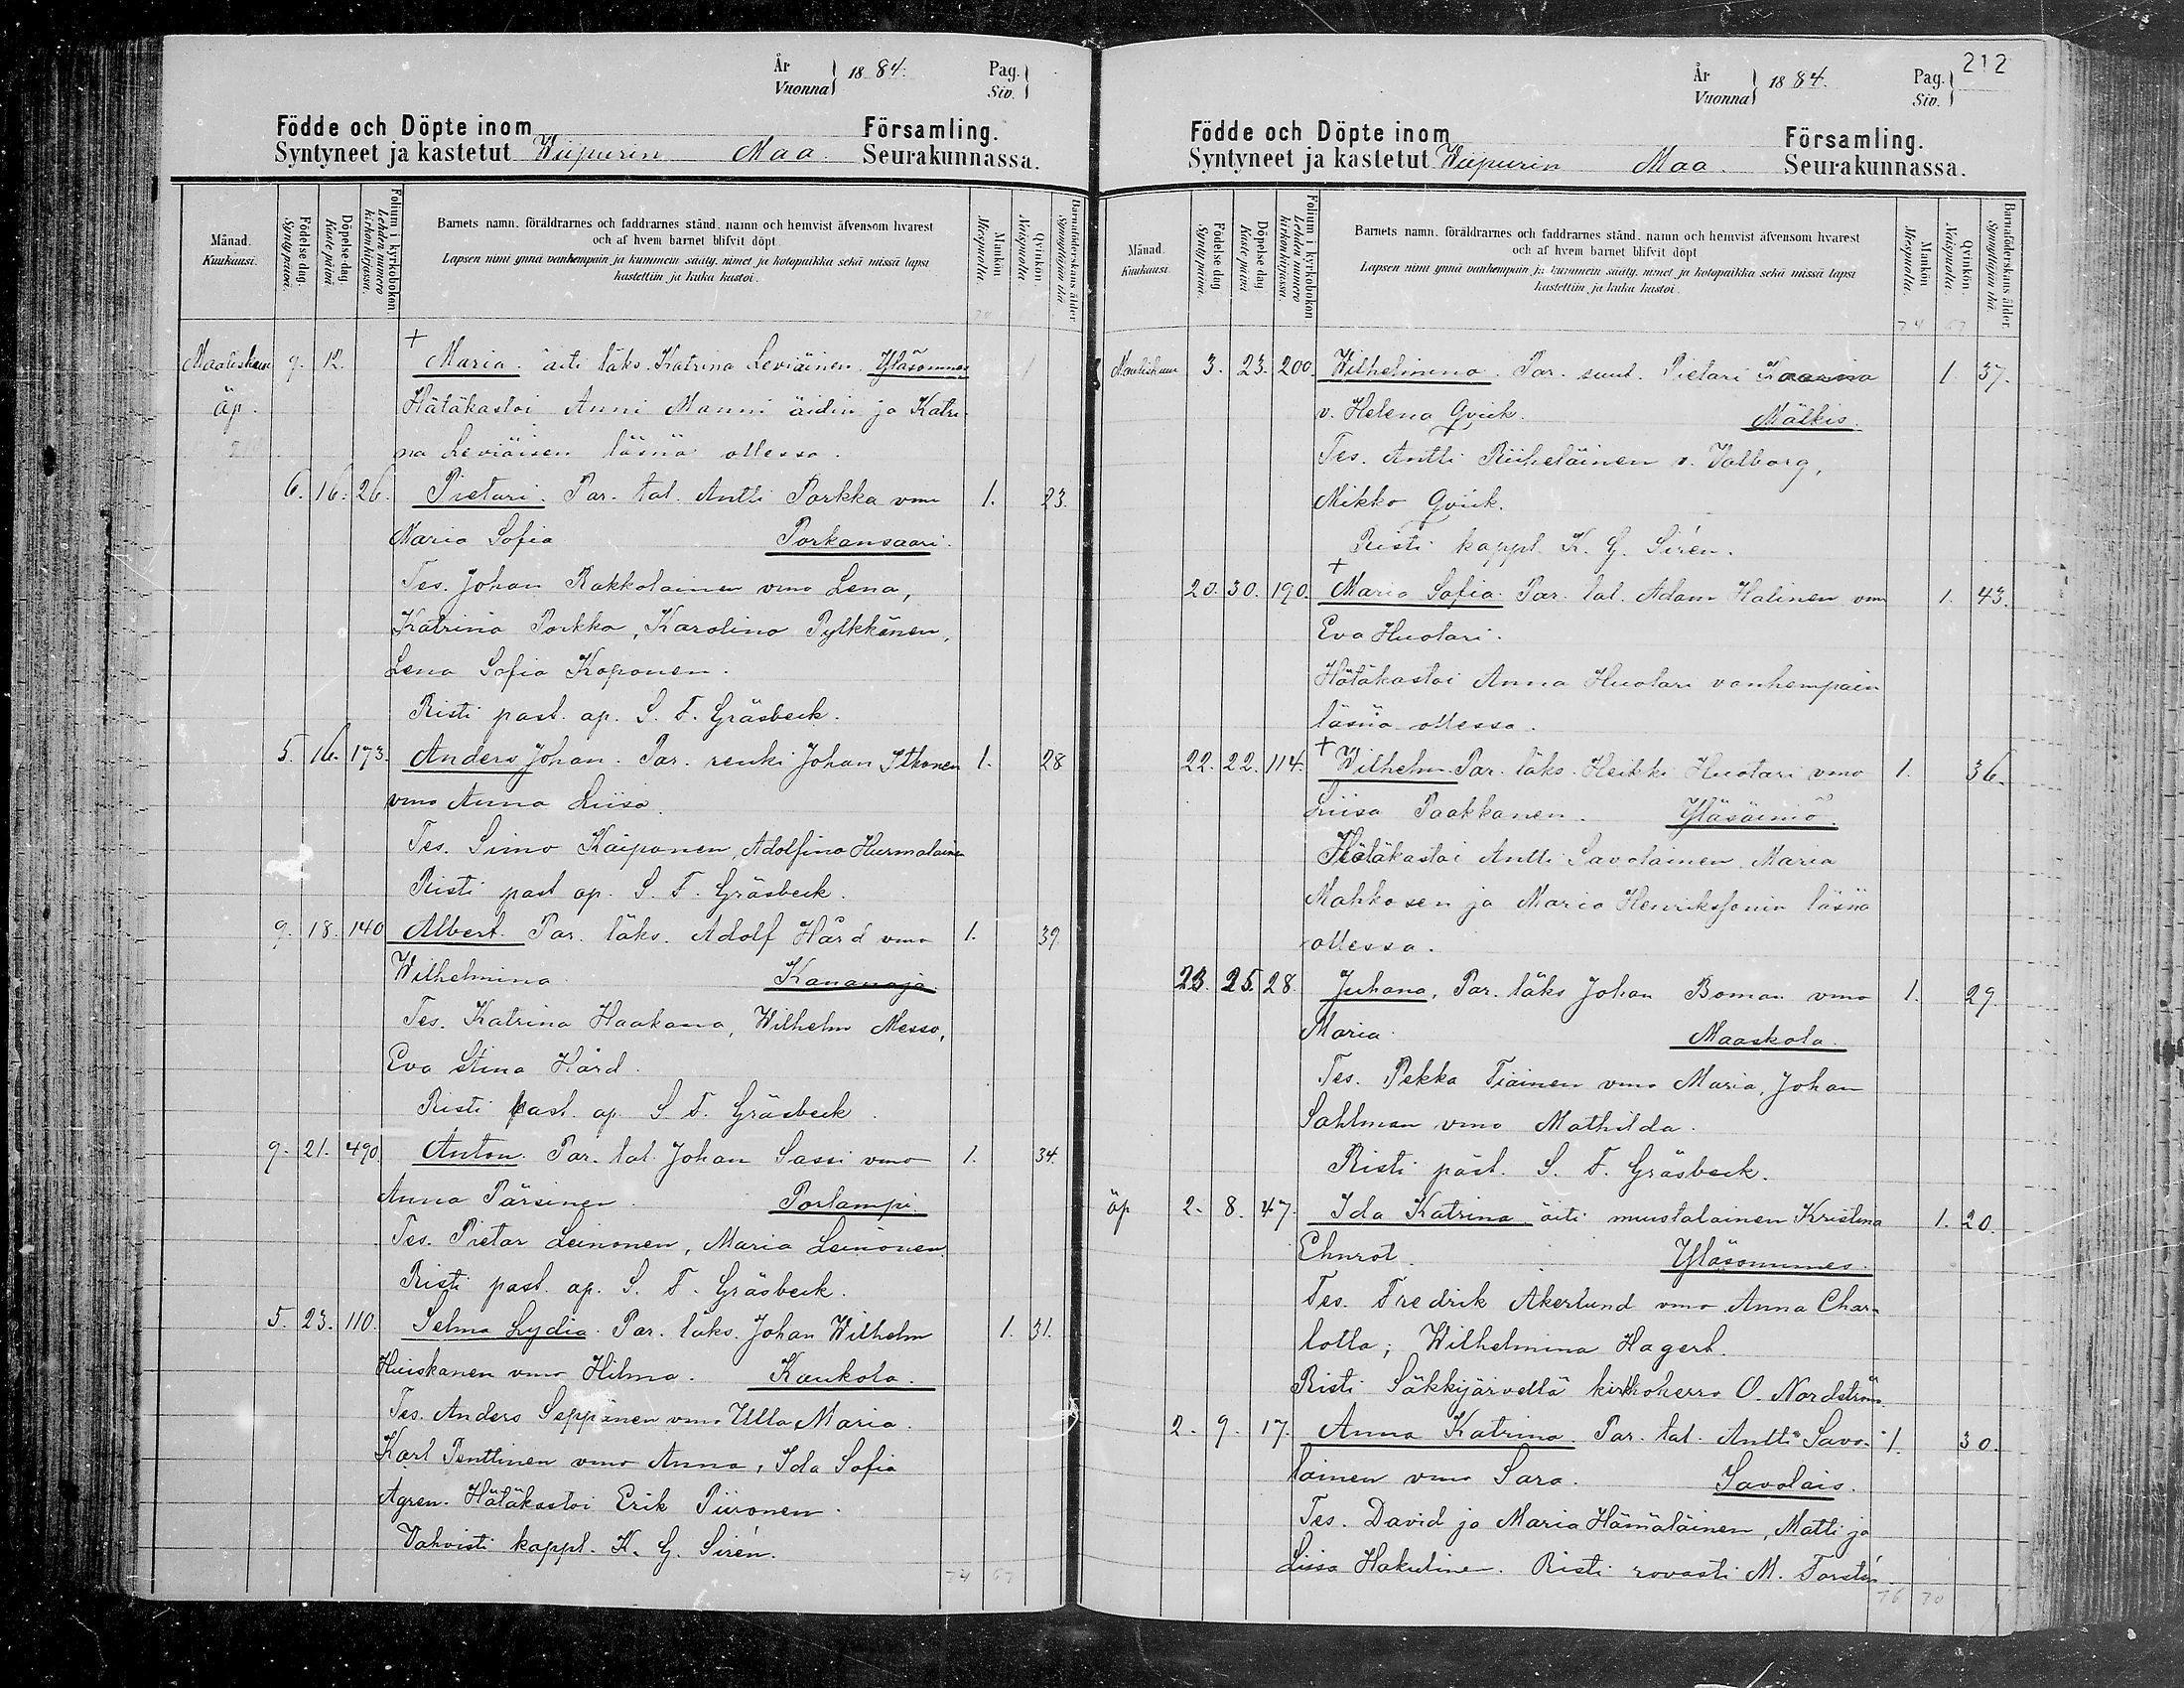 År
Vuonna
1884.
Pag.
Siv.
Födde och Döpte inom Församling.
Syntyneet ja kastetut Wiipurin Maa Seurakunnassa.
Månad. Kuukausi.
Födelse dag. Syntypäivä.
Döpelse dag. Kastepäivä
Folium i kyrkoboken Lehden numero kirkonkirjassa.
Barnets namn, föräldrarnes och faddrarnes stånd, namn och hemvist äfvensom hvarest
och af hvem barnet blifvit döpt.
Lapsen nimi ynnä vanhempain ja kummein sääty, nimet ja kotopaikka sekä missä lapsi
kastettiin ja kuka kastoi.
Mankön Miespuolia.
Qvinkön. Naispuolia.
Barnaföderskans ålder Synnyttäjän ikä
Maaliskuu 9. 12. + Maria. äiti läks. Katrina Leviäinen. Yläsommee 1
äp. Hätäkastoi Anni Manni äidin ja Katri-
na Leviäisen läsnä ollessa.
6. 16. 26. Pietari. Par. tal. Antti Porkka vmo 1. 23.
Maria Sofia Porkansaari.
Tes. Johan Rakkolainen vmo Lena,
Katrina Porkka, Karolina Pylkkänen,
Lena Sofia Koponen.
Risti past. ap. S. F. Gräsbeck.
5. 16. 173. Anders Johan. Par. renki Johan Itkonen 1. 28
vmo Anna Liisa.
Tes. Simo Kaiponen, Adolfina Hurmalainen
Risti past ap. S. F. Gräsbeck.
9. 18. 140 Albert. Par. läks. Adolf Hård vmo 1. 39
Wilhelmina Kananoja.
Tes. Katrina Haakana, Wilhelm Messo,
Eva Stina Hård.
Risti past. ap. S F. Gräsbeck.
9. 21. 490. Anton. Par. tal. Johan Sassi vmo 1. 34.
Anna Pärsinen. Porlampi.
Tes. Pietar Leinonen, Maria Leinonen.
Risti past. ap. S. F. Gräsbeck.
5. 23. 110. Selma Lydia. Par. läks. Johan Wilhelm 1. 31.
Huiskanen vmo Hilma. Kaukola.
Tes. Anders Seppänen vmo Ulla Maria.
Karl Penttinen vmo Anna, Ida Sofia
Agren. Hätäkastoi Erik Piironen.
Vahvisti kappl. K. G. Sirén.
74 67
212
År
Vuonna
1884.
Pag.
Siv.
Födde och Döpte inom Församling.
Syntyneet ja kastetut Wiipurin Maa. Seurakunnassa.
Månad. Kuukausi
Födelse dag. Syntypäivä.
Döpelse dag. Kastepäivä
Folium i kyrkoboken Lehden numero kirkonkirjassa.
Barnets namn, föräldrarnes och faddrarnes stånd, namn och hemvist äfvensom hvarest
och af hvem barnet blifvit döpt
Lapsen nimi ynnä vanhempain ja kummein sääty, nimet ja kotopaikka sekä missä lapsi
kastettiin ja kuka kastoi.
Mankön Miespuolia.
Qvinkön. Naispuolia.
Barnaföderskans ålder. Synnyttäjän ikä
74 67
Maaliskuu 3. 23. 200. Wilhelmina. Par. suut. Pietari 1. 37.
v. Helena Qvick. Mälkis.
Tes. Antti Riiheläinen v. Valborg,
Mikko Qvick.
Risti kappl. K. G. Sirén.
20. 30. 190. + Maria Sofia. Par. tal. Adam Halinen vm 1. 43.
Eva Huotari.
Hätäkastoi Anna Huotari vanhempain
läsnä ollessa.
22. 22. 114. + Wilhelm. Par. läks. Heikki Huotari vmo 1. 36.
Liisa Paakkanen. Yläsäiniö.
Hätäkastoi Antti Savolainen Maria
Mahkosen ja Maria Henrikssonin läsnä
ollessa.
23. 25. 28. Juhana, Par. läks Johan Boman vmo 1. 29.
Maria. Maaskola.
Tes. Pekka Tiainen vmo Maria, Johan
Sahlman vmo Mathilda.
Risti past. S. F. Gräsbeck.
äp 2. 8. 47. Ida Katrina äiti mustalainen Kristina 1. 20.
Ehnrot. Yläsommee.
Tes. Fredrik Akerlund vmo Anna Char-
lotta; Wilhelmina Hagert.
Risti Säkkijärvellä kirkkoherra O. Nordström
2. 9. 17. Anna Katrina. Par. tal. Antti Savo- 1. 30.
lainen vmo Sara. Savolais.
Tes. David ja Maria Hämäläinen, Matti ja
Liisa Hakuline. Risti rovasti M. Forstén.
76 70